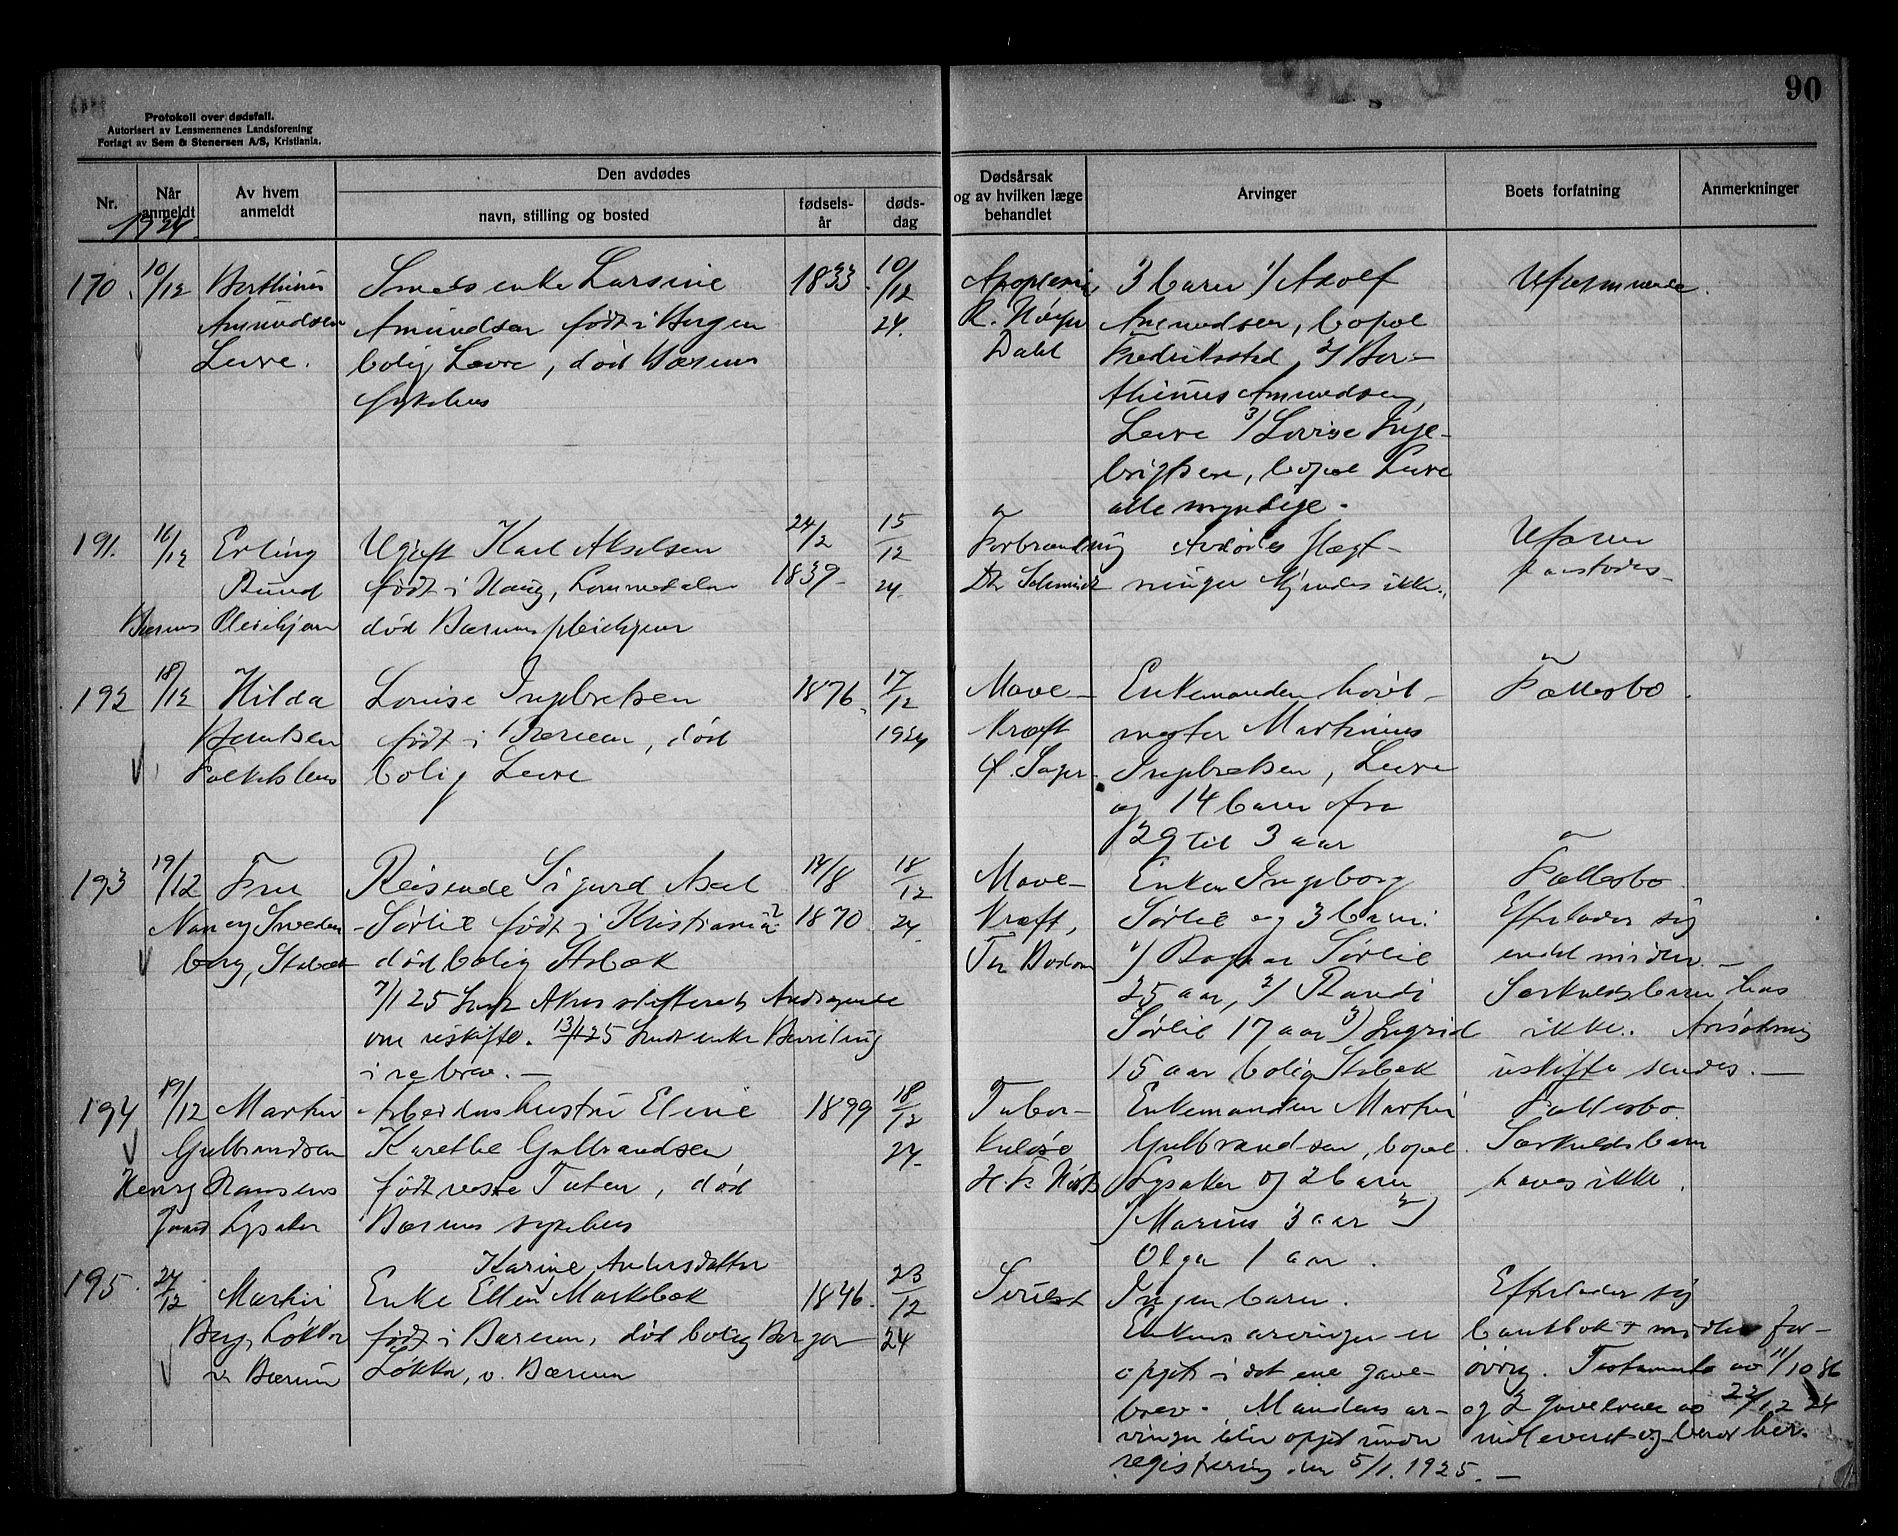 90
Protokoll over dødsfall.
Autorisert av Lensmennenes Landsforening
Forlagt av Sem & Stenersen A/S, Kristiania.
Nr.
Når anmeldt
Av hvem anmeldt
Den avdødes
navn, stilling og bosted
fødselsår
dødsdag
Dødsårsak og av hvilken læge behandlet
Arvinger
Boets forfatning
Anmerkninger
1924.
170. 10/12 Berthinus
Amundsen
Levre.
Smeds enke Larsine
Amundsen født i Bergen
bolig Levre, død Bærums
sykehus
1833.
10/12
24.
Apoplexia
Dahl
3 barn 1/ Adolf
Amundsen, bopæl
Fredrikstad, 2/ Ber-
thinus Amundsen,
Levre 3/ Lovise Inge-
brigtsen, bopæl Levre
alle myndige.
Uformuende.
191. 16/12 Erling
Rund
Bærums Pleiehjem
Ugift Karl Akselsen
født i Haug, Lommedalen
død Bærums pleiehjem
24/2
1839.
15/12
24.
Forbrænding
Dr Schmidt
Avdødes slegt-
ninger kjendes ikke.
192 18/12 Hilda
Folkets hus
Louise Ingebretsen
født i Bærum, død
bolig Levre
1876.
17/12
1924
Mave-
kræft
Enkemanden hovt-
mester Martinius
Ingebretsen, Levre
og 14 barn fra
29 til 3 aar
Fællesbo.
193 19/12 Fru
Nancy Sweden
borg, Stabæk
Reisende Sigurd Axel
Sørlie født i Kristiania?
død bolig Stabæk
7/1 25 Sendt Akers skifteret Andragende
om uskifte. 13/1 25 Sendt enke Bevilling
i re brev. —
14/8
1870.
18/12
24.
Mave-
kræft,
Enken Ingeborg
Sørlie og 3 barn:
1/ Sørlie
25 aar, 2/ Randi
Sørlie 17 aar 3/ Ingrid
15 aar, bolig Stabæk
Fællesbo.
Efterlader sig
endel midler. —
Særkuldsbarn has
ikke. Ansøkning
uskifte sendes. —
194 19/12 Martin
Gulbrandsen
Henry Hansens
gaard Lysaker
Arbeiderhustru Eline
Karethe Gulbrandsen
født vestre Toten, død
Bærums sykehus
1899
18/12
24.
Tuber-
kulose
Enkemanden Martin
Gulbrandsen, bopæl
Lysaker og 2 barn
1/ Marius 3 aar 2/
Olga 1 aar.
Fællesbo.
Særkuldsbarn
haves ikke.
195. 24/12 Martin
Berg, Løkken
v. Bærum
Karine Andersdatter
Enke Ellen Markebæk
født i Bærum, død bolig Berger
Løkken, v. Bærum
1846.
23/12
24
Svulst
Ingen barn.
Enkens arvinger er
opgit i det ene gave-
brev. Mandens ar-
vinger blir opgit under
registrering den 5/1. 1925. —
Efterlader sig
bankbok & midler for-
øvrig. Testamente av 11/10 86
og 2 gavebreve av 22/12 24
indleveret og beror her.